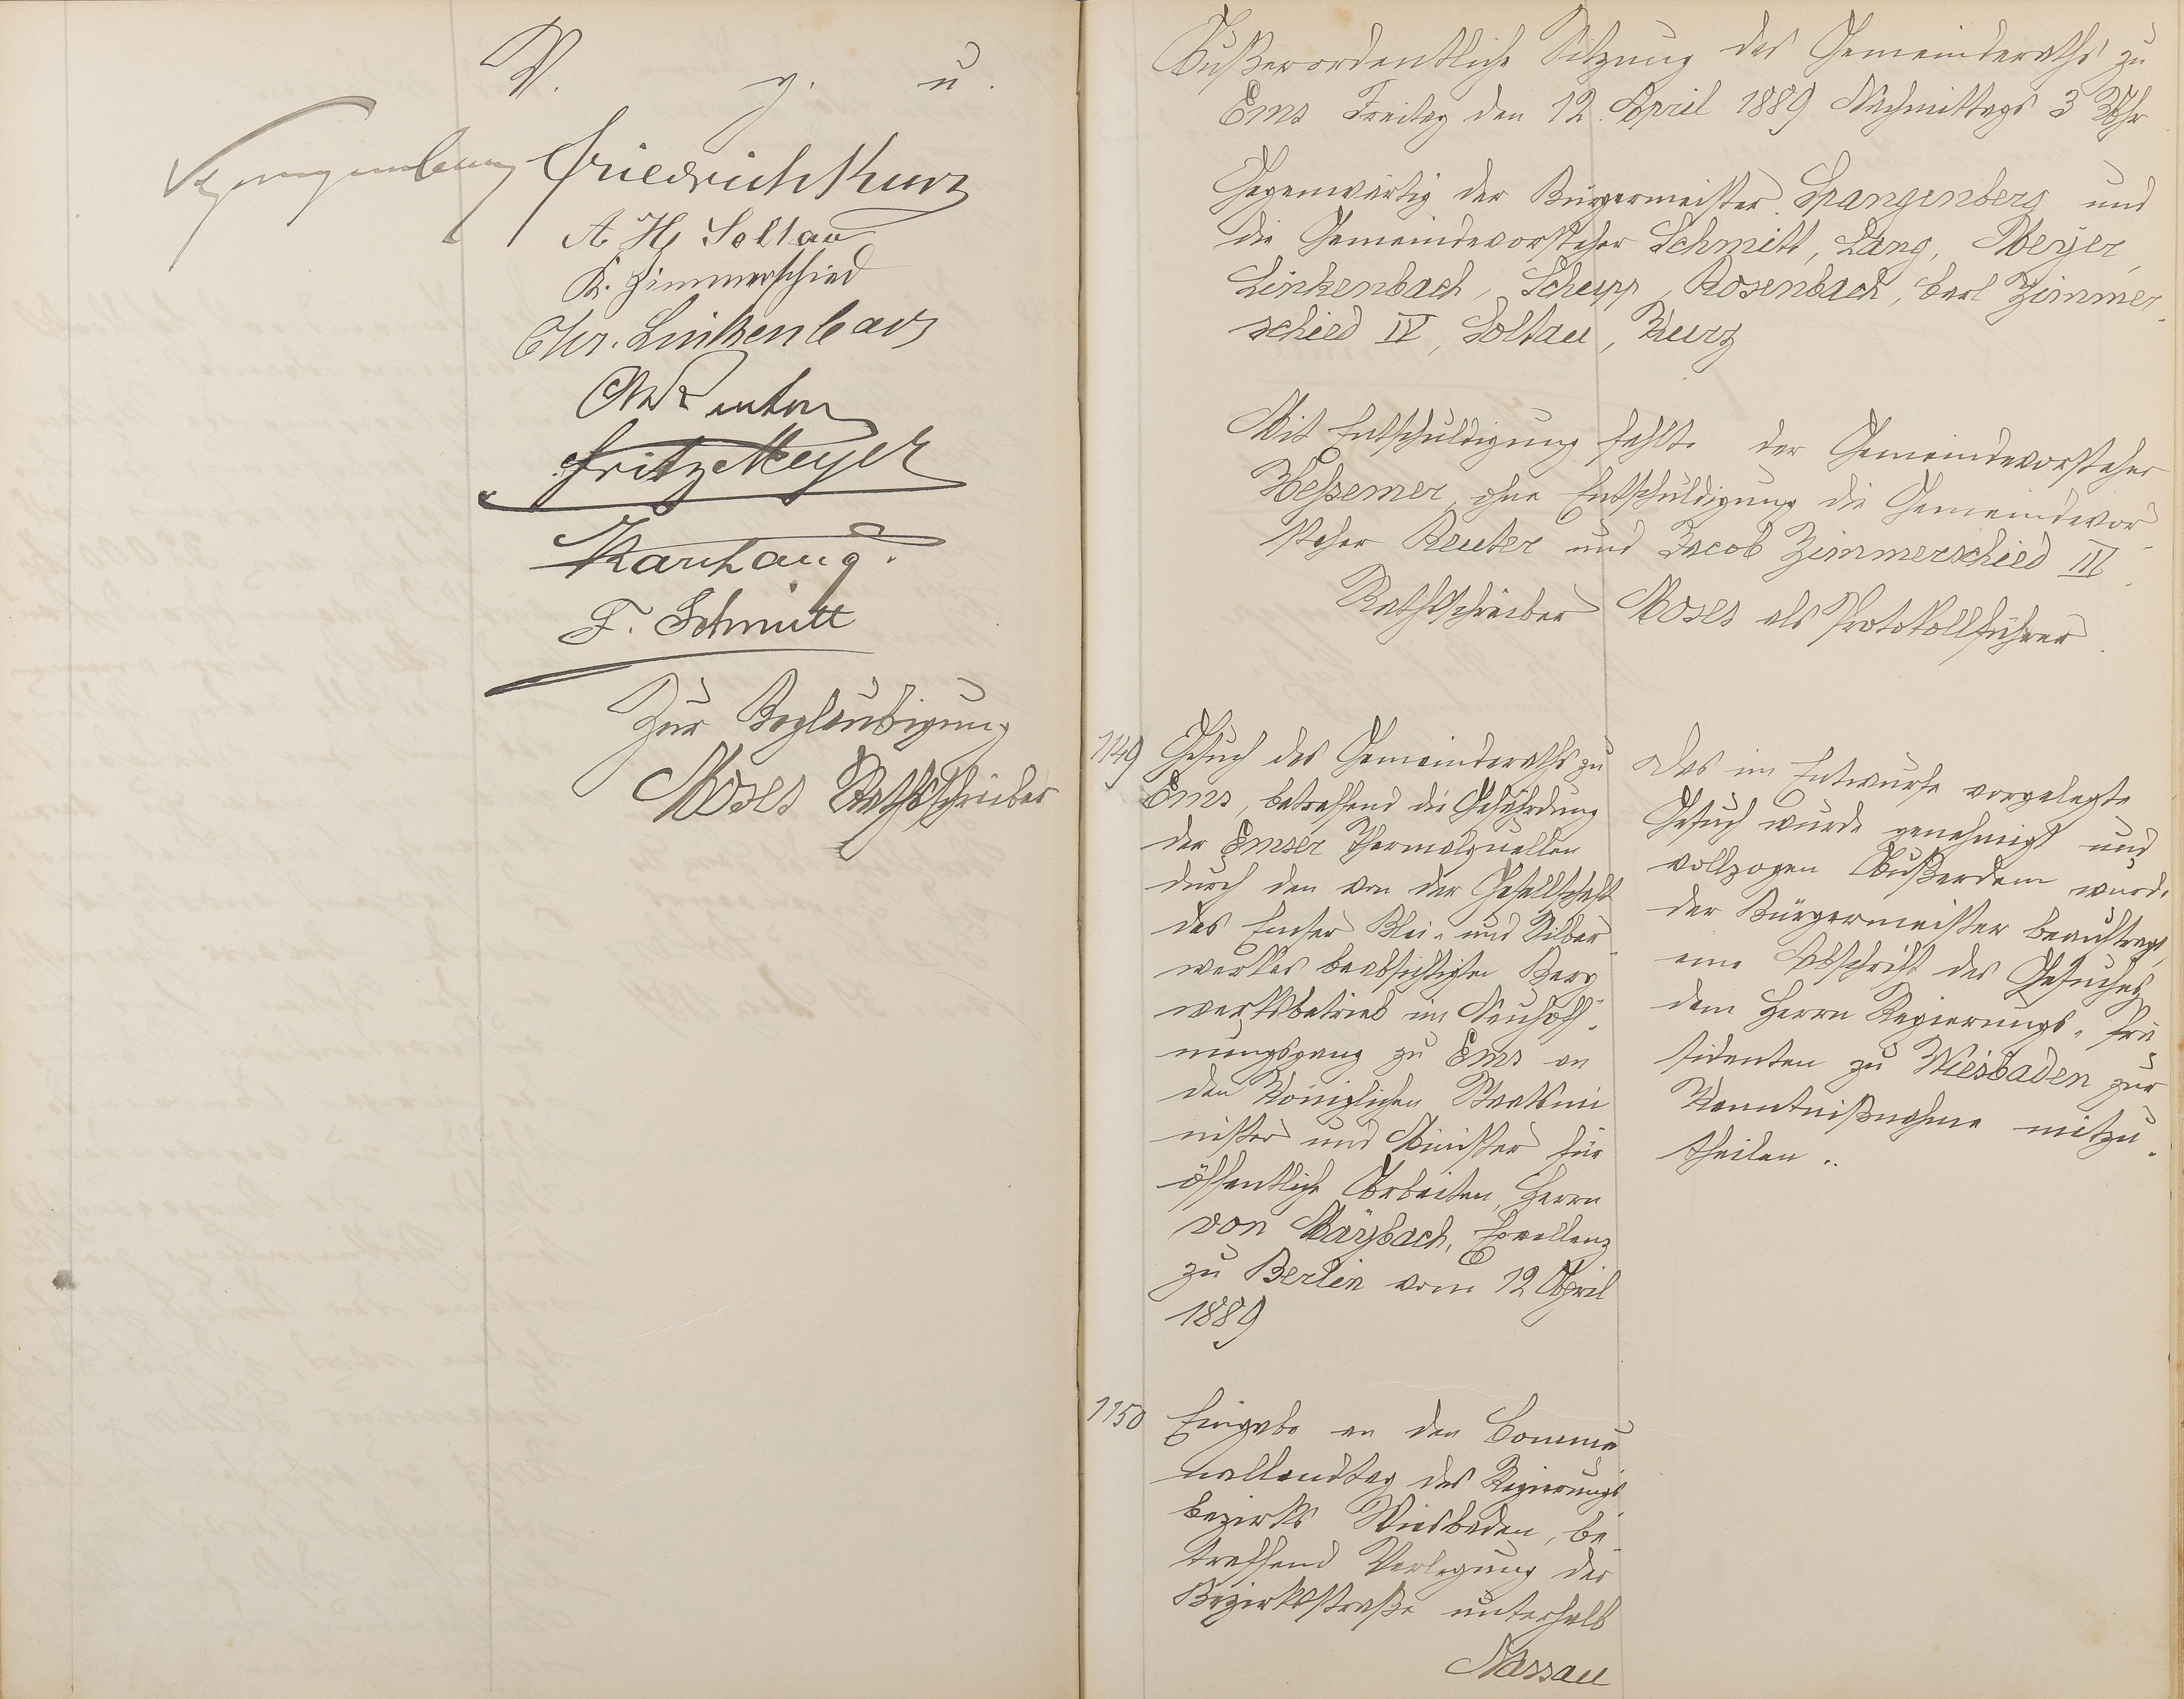 V. g. u.
Spangenberg Friedrich Kurz
A. H. Soltau
K. Zimmerschied
Chr. Linkenbach
Fritz Meyer
Karl Lang.
F. Schmitt
Zur Beglaubigung
Moses Rathschreiber
Außerordentliche Sitzung des Gemeinderaths zu
Ems Freitag den 12. April 1889 Nachmittags 3 Uhr
Gegenwärtig der Bürgermeister Spangenberg und
die Gemeindevorsteher Schmitt, Lang, Meyer,
Linkenbach, Schupp, Rosenbach, Carl Zimmer-
schied IV, Soltau, Kurz
Mit Entschuldigung fehlte der Gemeindevorsteher
Heßemer, ohne Entschuldigung die Gemeindevor-
steher Reuter und Jacob Zimmerschied III.
Rathschreiber Moses als Protokollführer.
1149 Gesuch des Gemeinderaths zu
Ems, betreffend die Gefährdung
der Emser Thermalquellen
durch den von der Gesellschaft
des Emser Blei- und Silber-
werkes beabsichtigten Berg-
werksbetrieb im Neuhoff-
nungsgang zu Ems an
den Königlichen Staatsmi-
nister und Minister für
öffentliche Arbeiten, Herrn
von Maybach, Excellenz
zu Berlin vom 12 April
1889
Das im Entwurfe vorgelegte
Gesuch wurde genehmigt und
vollzogen Außerdem wurde
der Bürgermeister beauftragt,
eine Abschrift des Gesuches
dem Herrn Regierungs-Prä-
sidenten zu Wiesbaden zur
Kenntnißnahme mitzu-
theilen.
1150 Eingabe an den Commu-
nallandtag des Regierungs-
bezirks Wiesbaden, be-
treffend Verlegung der
Bezirksstraße unterhalb
Nassau